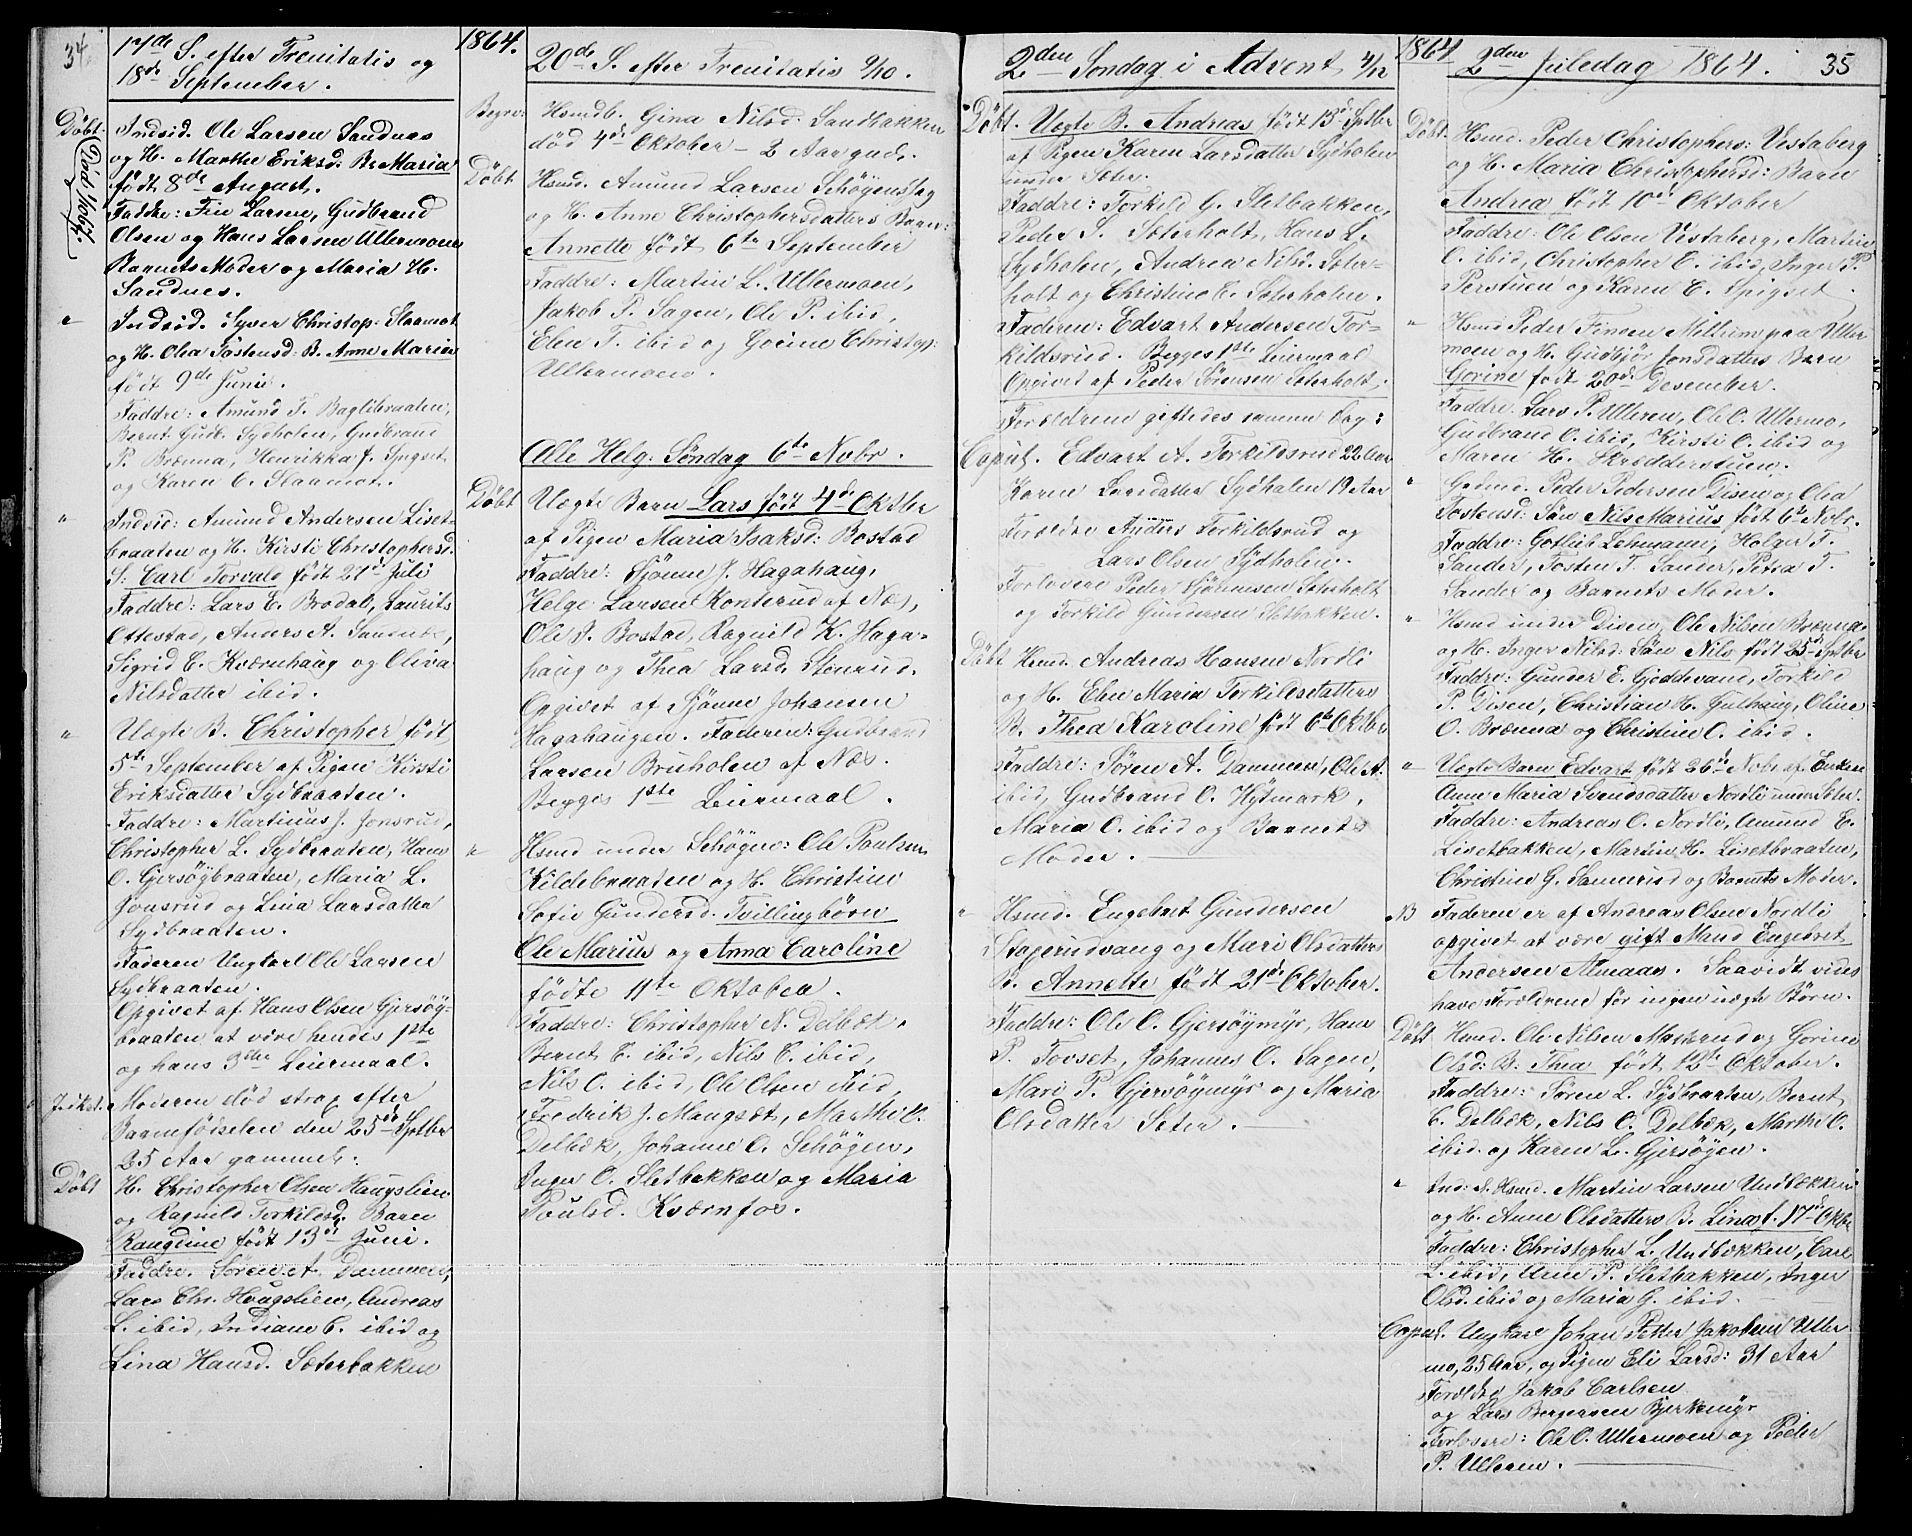 34.
17de S. efter Trenitatis og
18de September.
Døbt.
Død 1/10 64.
Indsid. Ole Larsen Sandnes
og H. Marthe Eriksd. B. Maria
født 8de August.
Faddre: Fin Larsen, Gudbrand
Olsen og Hans Larsen Ullermoen
Barnets Moder og Maria H.
Sandnes.
" Indsid. Syver Christop: Slaamot
og H. Olea Tostensd: B. Anne Maria
født 9de Juni.
Faddre: Amund T. Baglibraaten,
Bernt Gudb. Sydholen, Gudbrand
P. Brænna, Henrikka J. Spigset
og Karen C. Slaamot.
" Indsid: Amund Andersen Liset-
braaten og H. Kirsti Christophersd.
S: Carl Torvald født 27d Juli
Faddre: Lars E. Brodal, Laurits
Ottestad, Anders A.
Sigrid E. Kværnhaug og Oliva
Nilsdatter ibid.
" Uægte B. Christopher født
5te September af Pigen Kirsti
Eriksdatter Sydbraaten.
Faddre: Martinus J. Jonsrud,
Christopher L. Sydbraaten, Hans
O. Gjersøgbraaten, Maria L.
Jonsrud og Lina Larsdatter
Sydbraaten.
Faderen Ungkarl Ole Larsen
Sydbraaten.
Opgivet af Hans Olsen Gjersøg-
braaten at være hendes 1ste
og hans 3die Leiermaal.
Jrdkst. Moderen død strax efter
Barnefødselen den 25d Sptbr
25 Aar gammel.
Døbt H. Christopher Olsen Haugslien
og Ragnild Torkilsd. Barn
Rangdine født 13d Juni.
Faddre. Søren A. Dammen,
Lars Chr. Hougslien, Andreas
L. ibid, Indiane C. ibid og
Lina Hansd. Sæterbakken
1864.
20de S. efter Trenitatis 9/10.
Begr: Hsmdb. Gina Nilsd. Sandbakken
død 4de Oktober – 2 Aar gml.
Døbt Hsmd. Amund Larsen Schøgenslag
og H. Anne Christophersdatters Barn:
Annette født 6te September
Faddre: Martin L. Ullermoen,
Jakob P. Sagen, Ole P. ibid,
Elen T. ibid og Gorine Christop:
Ullermoen.
Alle Helg: Søndag 6te Novbr.
Døbt Uægte Barn Lars født 4de Oktber
af Pigen Maria Isaksd: Bostad
Faddre: Sjønne J. Hagahaug,
Helge Larsen Konterud af Næs,
Ole J. Bostad, Ragnild K. Haga-
haug og Thea Larsd. Stenrud.
Opgivet af Sjønne Johansen
Hagahaugen. Faderen: Gudbrand
Larsen Bruholen af Næs.
Begges 1ste Leiermaal.
" Hsmd under Schøgen: Ole Paulsen
Kildebraaten og H. Christine
Sofie Gundersd. Tvillingbørn
Ole Marius og Anna Caroline
fødte 11te Oktober.
Faddre: Christopher N. Delbæk,
Bernt C. ibid, Nils C. ibid,
Nils O. ibid, Ole Olsen ibid,
Fredrik J. Mangset, Marthe K.
Delbæk, Johanne O. Schøgen,
Inger O. Sletbakken og Maria
Poulsd. Kværnfos.
2den Søndag i Advent 4/12
Døbt. Uægte B. Andreas født 13d Sptbr
af Pigen Karen Larsdatter Sydholen
under Sæter.
Faddre: Torkild G. Sletbakken,
Peder S. Sæterholt, Hans L.
Sydholen, Andrea Nilsd. Sæter-
holt og Christine C. Sæterholen.
Faderen: Edvart Andersen Tor-
kildsrud. Begges 1ste Leiermaal
Opgivet af Peder Sørensen Sæterholt.
Forældrene giftedes samme Dag:
Copul. Edvart A. Torkildsrud 22 Aar
Karen Larsdatter Sydholen 19 Aar
Forældre Anders Torkildsrud og
Lars Olsen Sydholen.
Forlovere Peder Sørensen Sæterholt
og Torkild Gundersen Sletbakken.
Døbt Hsmd. Andreas Hansen Nordli
og H. Elen Maria Torkildsdatters
B. Thea Karoline født 6te Oktbr
Faddre: Søren A. Dammen, Ole A.
ibid, Gudbrand O. Hytmark,
Maria O. ibid og Barnets
Moder.
" Hsmd. Engebret Gundersen
Stagerudvang og Mari Olsdatters
B. Annette født 21de Oktober.
Faddre: Ole O. Gjersøgmyr, Hans
P. Tovset, Johannes O. Sagen,
Mari P. Gjersøgmyr og Maria
Olsdatter Seter.
1864
2den Juledag 1864. 35
Døbt. Hsmd. Peder Christophers: Vestaberg
og H. Maria Christophersd: Barn
Andrea født 10d Oktober
Faddre: Ole Olsen Vestaberg, Martin
C. ibid, Christopher C. ibid, Inger P.
Perstuen og Karen C. Spigset.
" Hsmd Peder Finsen Melhim paa Uller
moen og H. Gudbjør Jonsdatters Barn
Gorine født 20d Desember.
Faddre: Lars P. Ulleren, Ole O. Ullermo,
Gudbrand O. ibid, Kirsti O. ibid og
Maren H. Skredderstuen.
" Gadmd. Peder Pedersen Disen og Olea
Tostensd: Søn Nils Marius født 6d Nobr.
Faddre: Gotlieb Lehmann, Holger T.
Sander, Tosten T. Sander, Petra T.
Sander og Barnets Moder.
" Hsmd under Disen, Ole Nilsen Brænna
og H. Inger Nilsd: Søn Nils født 25d Sptbr
Faddre: Gunder E. Gjeddevand, Torkild
P. Disen, Christian H. Gulhaug, Oline
O. Brænna og Christine O. ibid.
" Uægte Barn Edvart født 26d Nobr af Enken
Anne Maria Svendsdatter Nordli under Sæter.
Faddre: Andreas O. Nordli, Amund E.
Lisetbakken, Martin H. Lisetbraaten,
Christine G. Sannerud og Barnets Moder.
NB Faderen er af Andreas Olsen Nordli
opgivet at være gift Mand Engebret
Andersen Almaas. Saavidt vides
have Forældrene før ingen uægte Børn.
Døbt Hsmd. Ole Nilsen Maserud og Gorine
Olsd: B. Thea født 12te Oktober.
Faddre: Søren L. Sydbraaten, Bernt
C. Delbæk, Nils O. Delbæk, Marthe O.
ibid og Karen L. Gjersøgen.
" Ind: & Hsmd. Martin Larsen Undbækken
og H. Anne Olsdatters B. Lina f. 17d Oktbr
Faddre: Christopher L. Undbækken, Carl
L. ibid, Arne P. Sletbakken, Inger
Olsd. ibid og Maria G. ibid.
Copul. Ungkarl Johan Petter Jakobsen Uller
mo, 25 Aar, og Pigen Eli Larsd: 31 Aar
Forældre Jakob Carlsen
og Lars Borgersen Bjerkemyr
Forlovere: Ole O. Ullermoen og Peder
P. Ulleren.